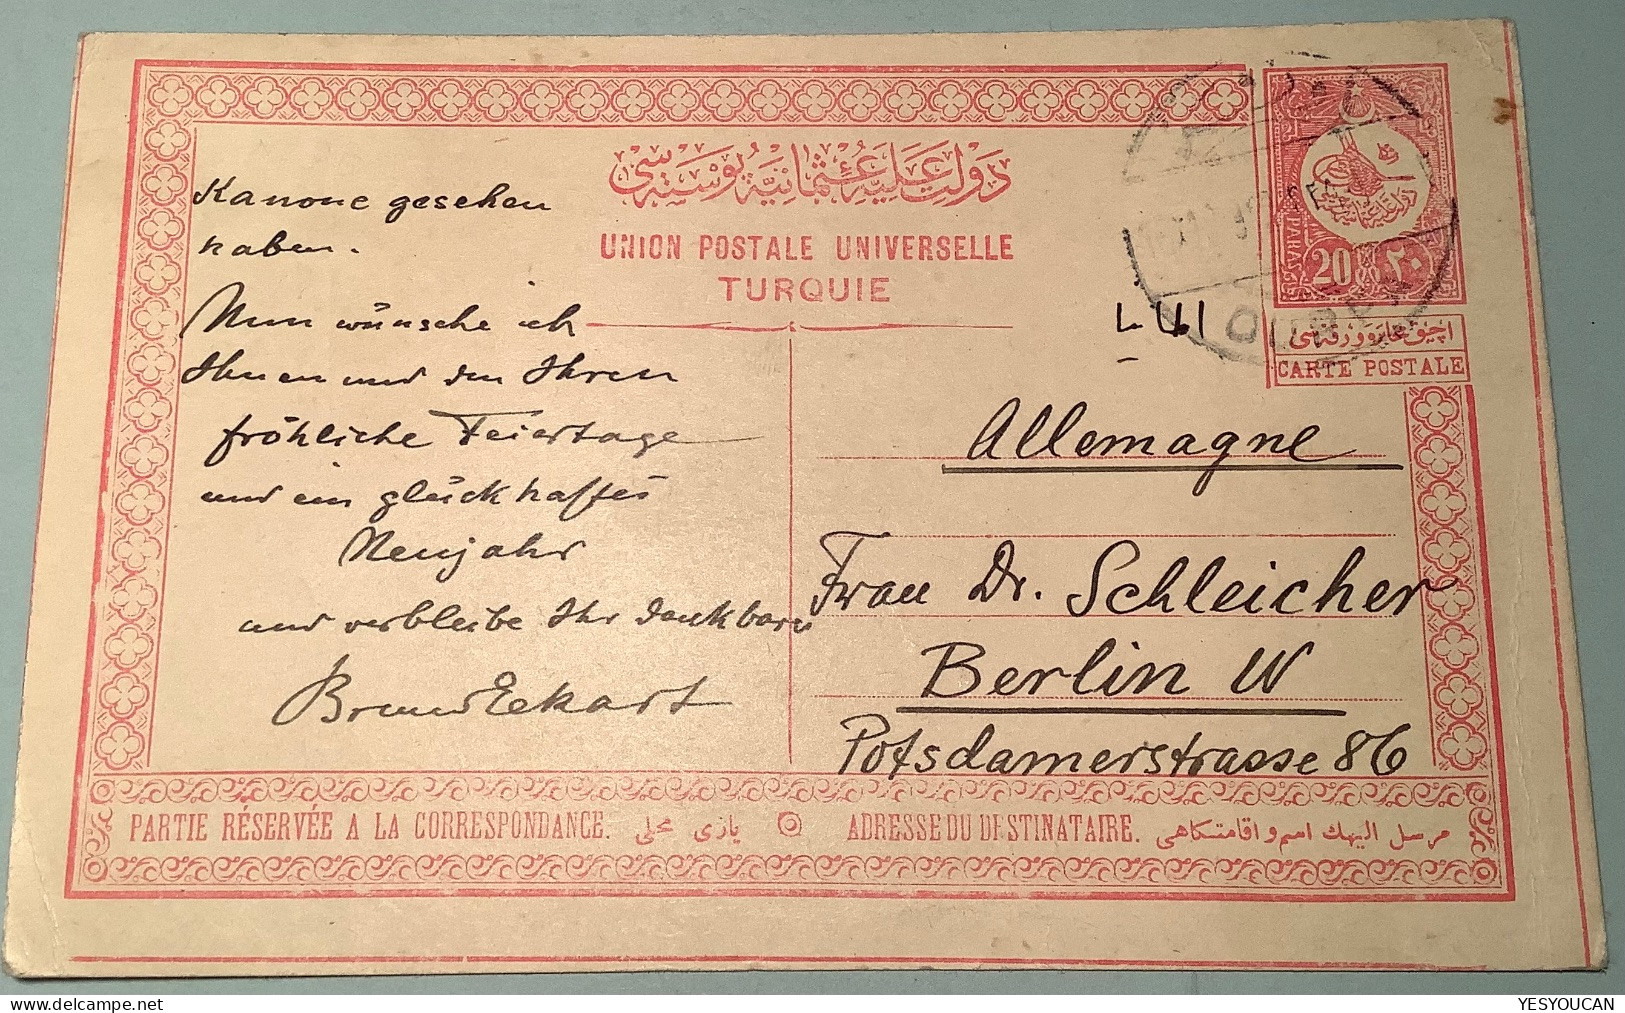 دولت عليه عثمانيه پوسته سى
UNION POSTALE UNIVERSELLE
TURQUIE
20
٢٠
آچيق مخابره ورقه سى
CARTE POSTALE
Kanone gesehen
haben.
Nun wünsche ich
Ihnen und den Ihren
fröhliche Feiertage
und ein glückhaftes
Neujahr
und verbleibe Ihr dankbarer
Bruno Eckart
Allemagne
Frau Dr. Schleicher
Berlin W
Potsdamerstrasse 86
PARTIE RÉSERVÉE A LA CORRESPONDANCE.
يازى محلى
ADRESSE DU DESTINATAIRE.
مرسل اليهك اسم و اقامتكاهى
YESYOUCAN